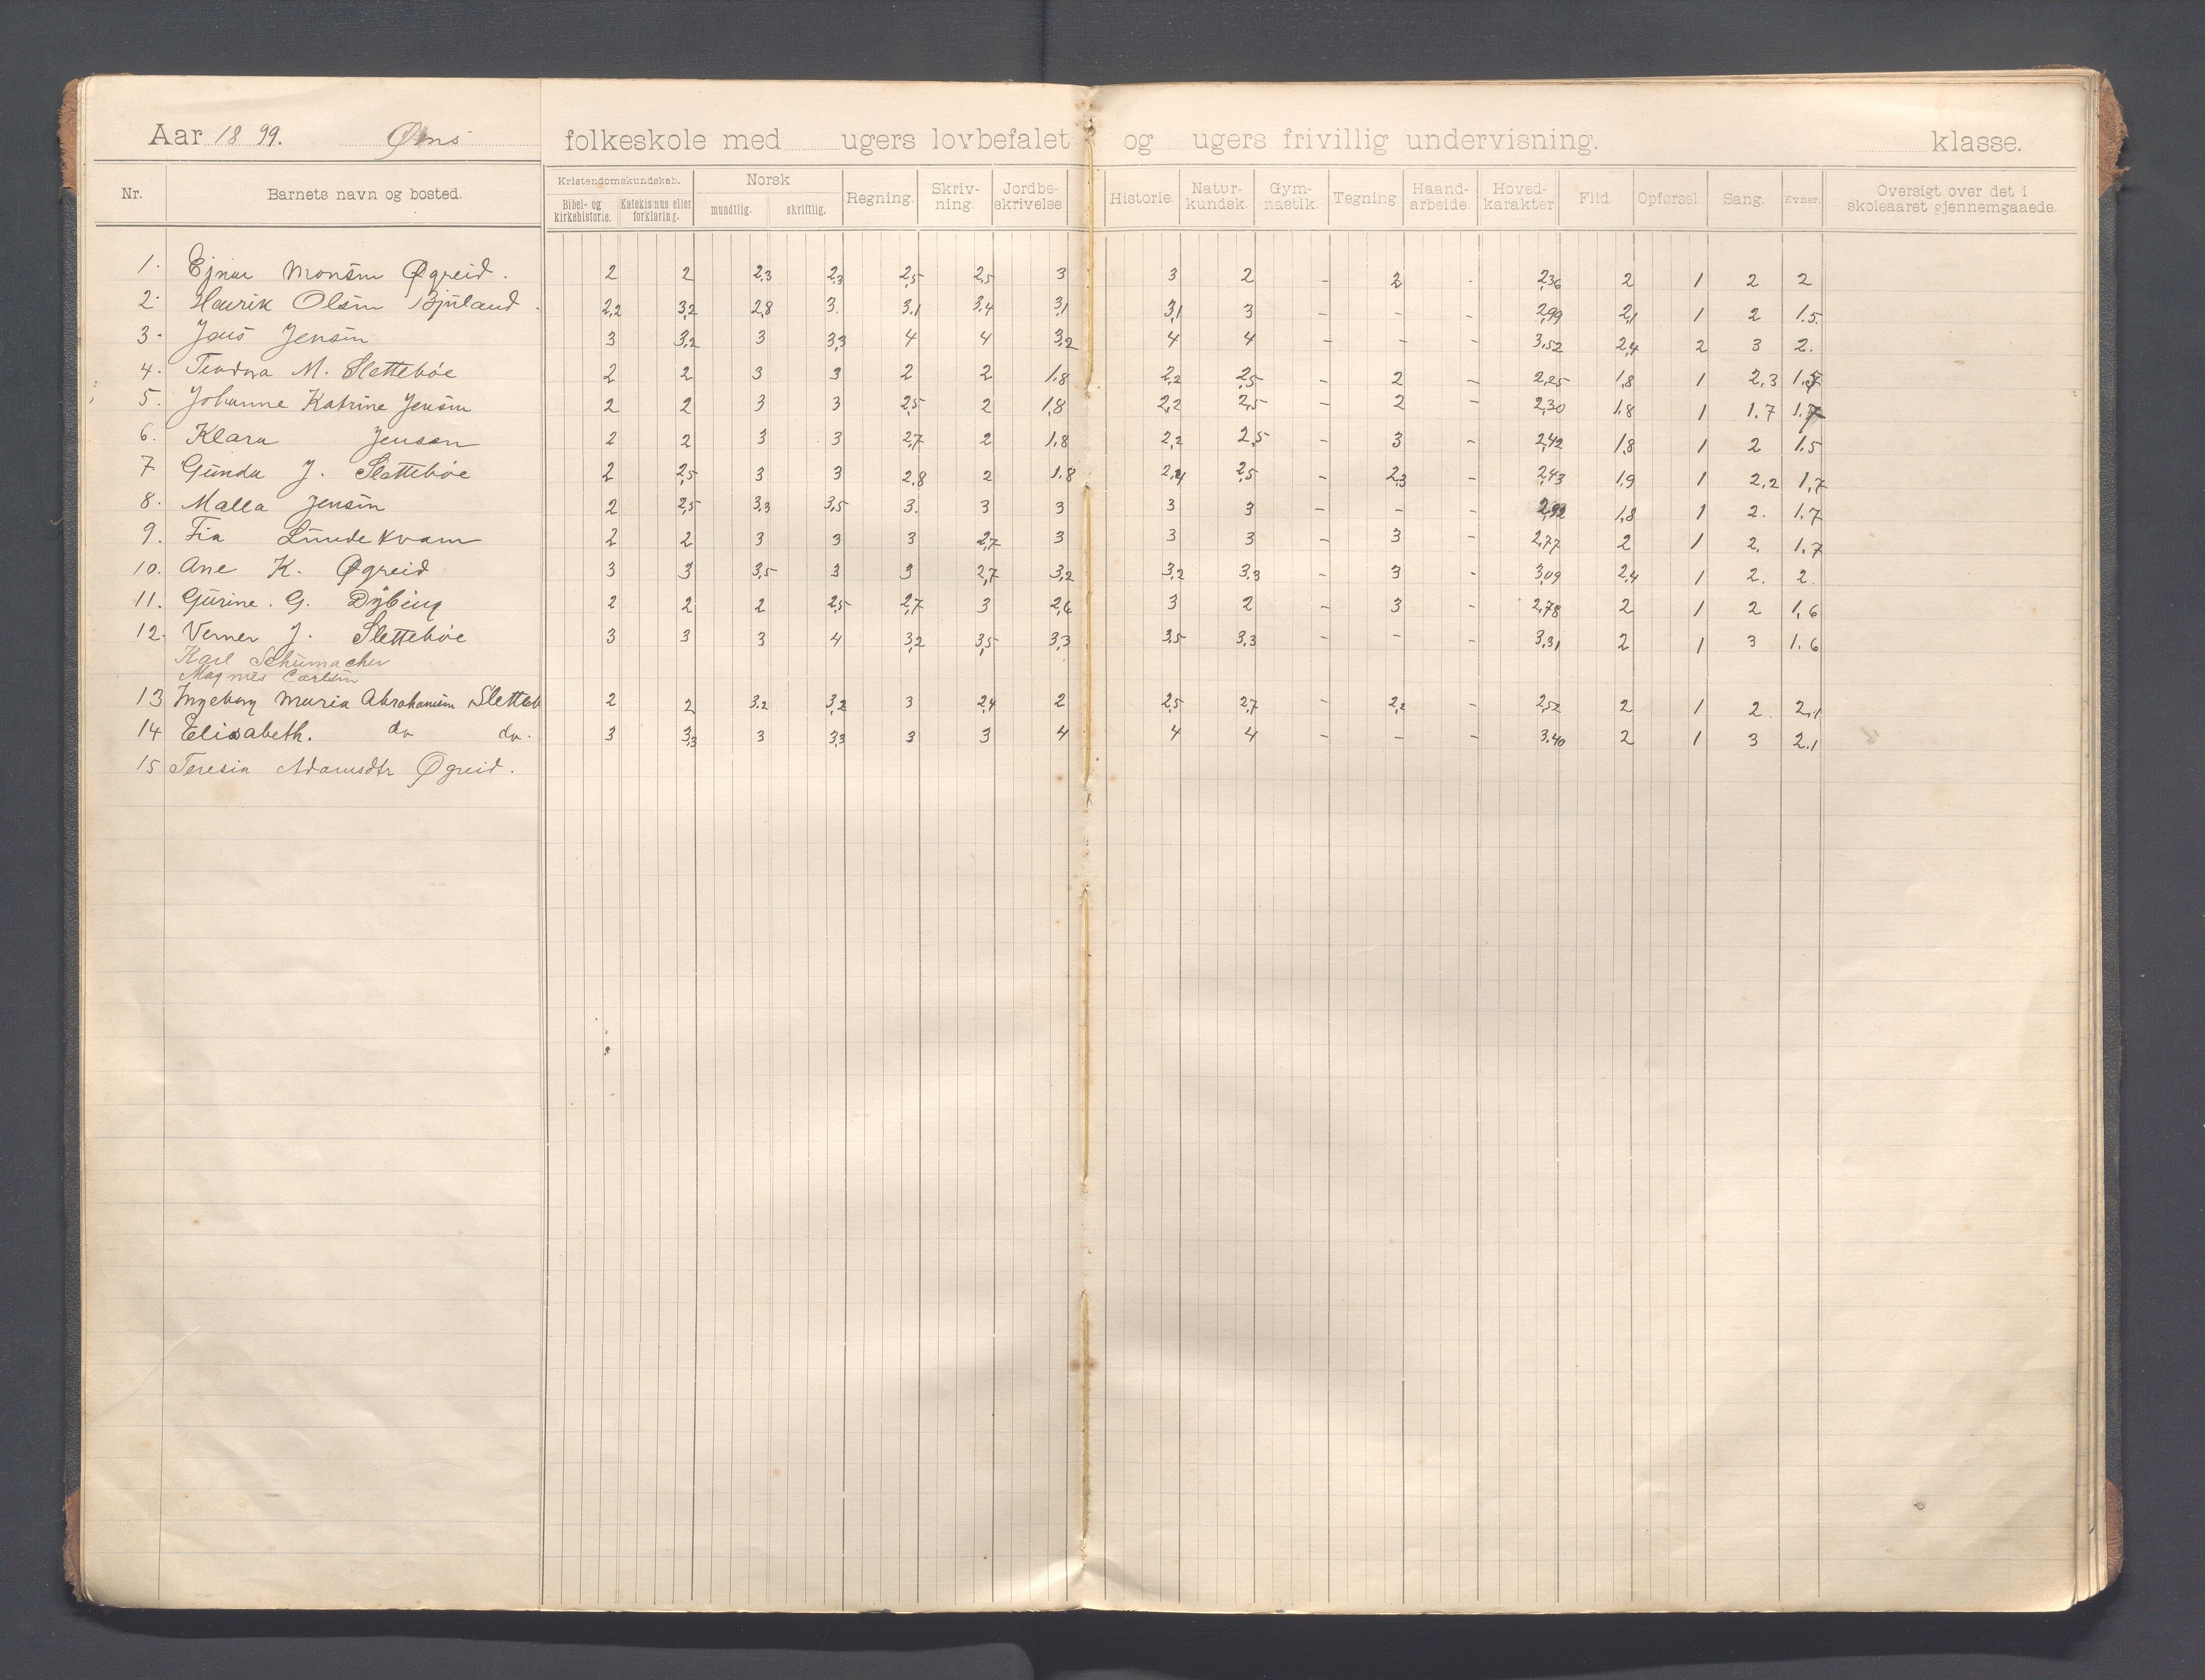 Aar 1899. folkeskole med ugers lovbefalet og ugers frivillig undervisning. klasse.
Nr. Barnets navn og bosted. Kristendomskundskab. Bibel- og kirkehistorie. Katekismus eller forklaring. Norsk mundtlig. skriftlig. Regning. Skriv-ning. Jordbe-skrivelse Historie. Natur-kundsk. Gym-nastik. Tegning. Haand-arbeide. Hoved-karakter Flid Opførsel Sang. Evner. Oversigt over det i skoleaaret gjennemgaaede.
1. Ejnar Monsen Øgreid. 2 2 2,3 2,3 2,5 2,5 3 3 2 - 2 - 2,36 2 1 2 2
2. Henrik Olsen Bjuland. 2,2 3,2 2,8 3. 3.1 3,4 3,1 3,1 3 - - - 2,99 2,1 1 2 1.5.
3. Jens Jensen 3 3,2 3 3,3 4 4 3,2 4 4 - - - 3,52 2,4 2 3 2.
4. Teodora M. Slettebøe 2 2 3 3 2 2 1,8 2,2 2,5 - 2 - 2,25 1,8 1 2,3
5. Johanne Katrine Jensen 2 2 3 3 2,5 2 1,8 2,2 2,5 - 2 - 2,30 1,8 1 1.7 1.7
6. Klara Jensen 2 2 3 3 2,7 2 1,8 2,2 2,5 - 3 - 2,42 1,8 1 2 1.5
7 Gunda J. Slettebøe 2 2,5 3 3 2,8 2 1.8 2,4 2,5 - 2,3 - 2,43 1,9 1 2,2 1,7
8. Malla Jensen 2 2,5 3,3 3,5 3. 3 3 3 3 - - - 1,8 1 2. 1.7
9. Tia Lunde Kvam 2 2 3 3 3 2,7 3 3 3 - 3 - 2,77 2 1 2. 1.7
10. Ane K. Øgreid 3 3 3,5 3 3 2,7 3,2 3,2 3,3 - 3 - 3,09 2,4 1 2. 2.
11. Gurine. G. Dybing 2 2 2 2,5 2,7 3 2,6 3 2 - 3 - 2,78 2 1 2 1,6
12. Verner J. Slettebøe 3 3 3 4 3,2 3,5 3,3 3,5 3,3 - - - 3,31 2 1 3 1.6
Karl Schumacher
Magnus Carlsen
13 Ingeborg Maria Abrahamsen Sletteb 2 2 3,2 3,2 3 2,4 2 2,5 2,7 - 2,2 - 2,52 2 1 2. 2,1
14 Elisabeth. do do. 3 3,3 3 3,3 3 3 4 4 4 - - - 3,40 2 1 3 2.1
15 Teresia Adamsdtr Øgreid.